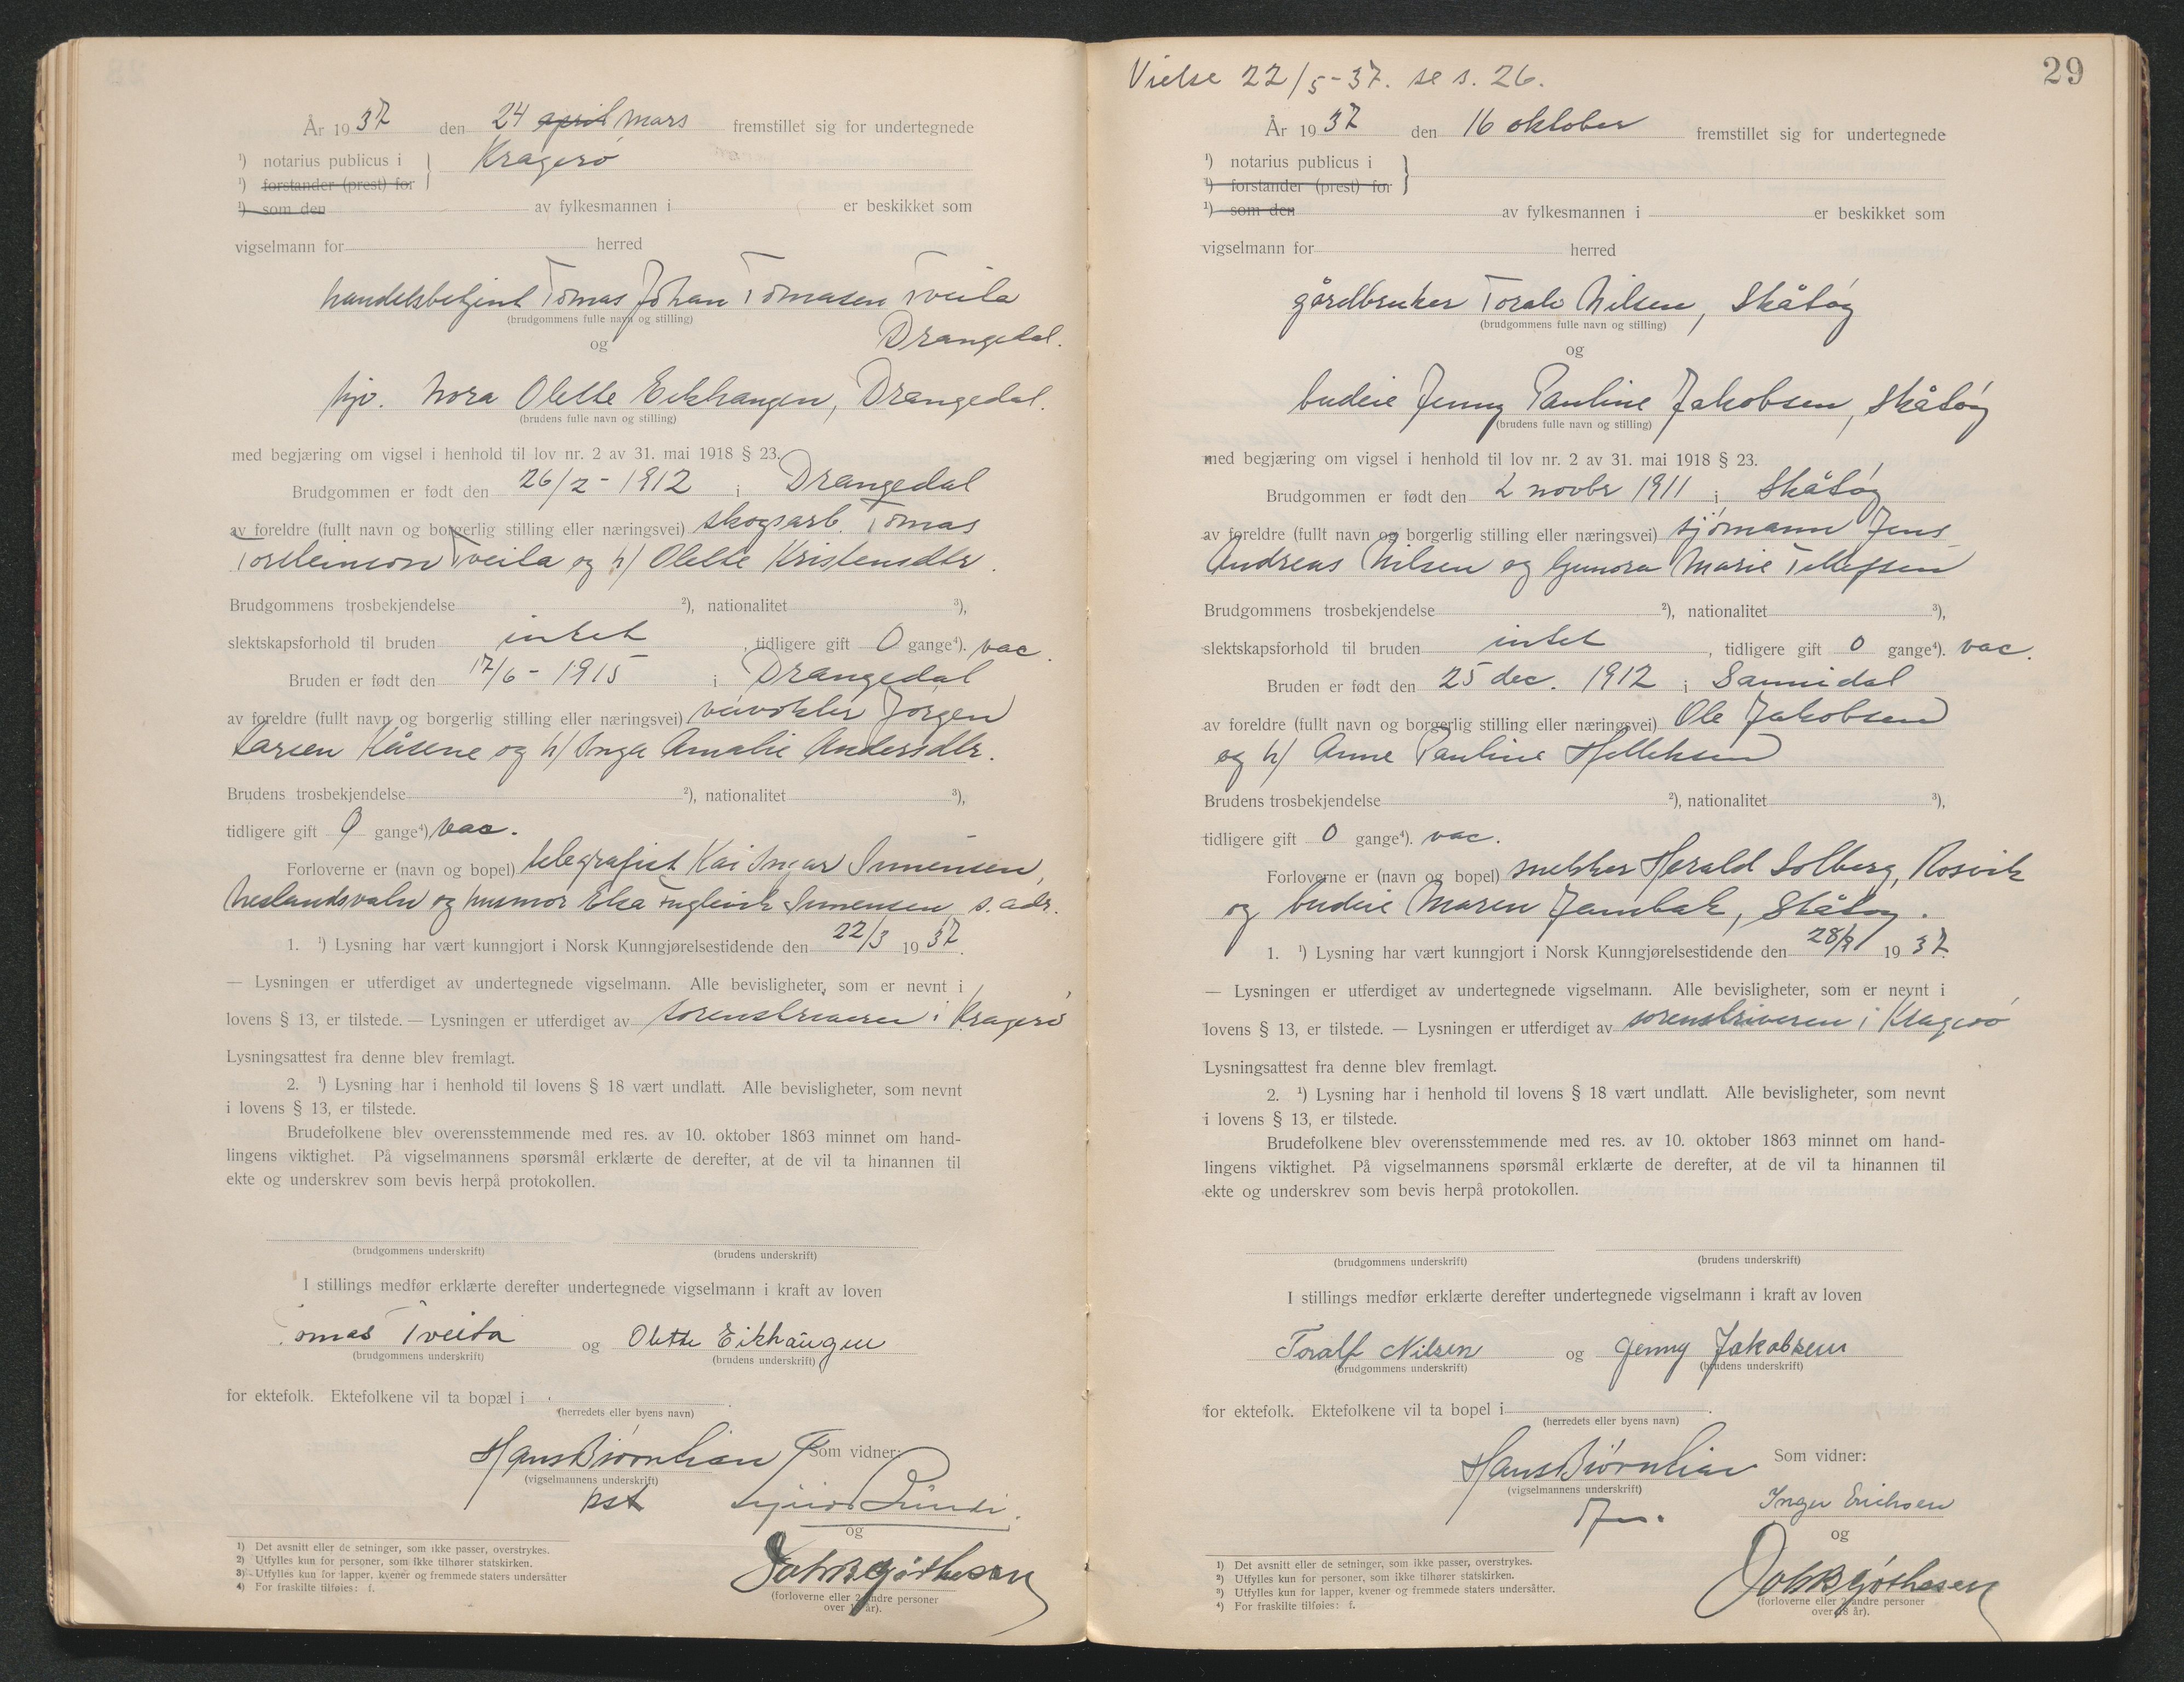 År 1937 den 24 april mars fremstillet sig for undertegnede
¹) notarius publicus i Kragerø
¹) forstander (prest) for
¹) som den av fylkesmannen i er beskikket som
vigselmann for herred
handelsbetjent Tomas Johan Tomasen Tveita
(brudgommens fulle navn og stilling)
Drangedal.
og
hjv. Nora Olette Eikhaugen, Drangedal.
(brudens fulle navn og stilling)
med begjæring om vigsel i henhold til lov nr. 2 av 31. mai 1918 § 23.
Brudgommen er født den 26/2 - 1912 i Drangedal
av foreldre (fullt navn og borgerlig stilling eller næringsvei) skogsarb. Tomas
Torsteinson Tveita og h/ Olette Kristensdtr.
Brudgommens trosbekjendelse ²), nationalitet ³),
slektskapsforhold til bruden intet, tidligere gift 0 gange⁴). vac.
Bruden er født den 17/6 - 1915 i Drangedal
av foreldre (fullt navn og borgerlig stilling eller næringsvei) veivokter Jørgen
Larsen Kåsene og h/ Inga Amalie Andersdtr.
Brudens trosbekjendelse ²), nationalitet ³),
tidligere gift 0 gange⁴) vac.
Forloverne er (navn og bopel) telegrafist Kai Immensen,
Neslandsvatn og husmor Elsa Immensen s. adr.
1. ¹) Lysning har vært kunngjort i Norsk Kunngjørelsestidende den 22/3 1937.
— Lysningen er utferdiget av undertegnede vigselmann. Alle bevisligheter, som er nevnt i
lovens § 13, er tilstede. — Lysningen er utferdiget av sorenskriveren i Kragerø
Lysningsattest fra denne blev fremlagt.
2. ¹) Lysning har i henhold til lovens § 18 vært undlatt. Alle bevisligheter, som nevnt
i lovens § 13, er tilstede.
Brudefolkene blev overensstemmende med res. av 10. oktober 1863 minnet om hand-
lingens viktighet. På vigselmannens spørsmål erklærte de derefter, at de vil ta hinannen til
ekte og underskrev som bevis herpå protokollen.
(brudgommens underskrift) (brudens underskrift)
I stillings medfør erklærte derefter undertegnede vigselmann i kraft av loven
Tomas Tveita og Olette Eikhaugen
(brudgommens underskrift) (brudens underskrift)
for ektefolk. Ektefolkene vil ta bopæl i .
(herredets eller byens navn)
Hans Bjørnlian Som vidner:
(vigselmannens underskrift)
og
(forloverne eller 2 andre personer
over 18 år).
1) Det avsnitt eller de setninger, som ikke passer, overstrykes.
2) Utfylles kun for personer, som ikke tilhører statskirken.
3) Utfylles kun for lapper, kvener og fremmede staters undersåtter
4) For fraskilte tilføies: f.
29
Vielse 22/5-37. se s. 26.
År 1937 den 16 oktober fremstillet sig for undertegnede
¹) notarius publicus i
¹) forstander (prest) for
¹) som den av fylkesmannen i er beskikket som
vigselmann for herred
gårdbruker Toralv Nilsen, Skåtøy
(brudgommens fulle navn og stilling)
og
budeie Jenny Pauline Jakobsen, Skåtøy
(brudens fulle navn og stilling)
med begjæring om vigsel i henhold til lov nr. 2 av 31. mai 1918 § 23.
Brudgommen er født den 2 novbr 1911 i Skåtøy
av foreldre (fullt navn og borgerlig stilling eller næringsvei) sjømann Jens
Andreas Nilsen og Gunora Marie Tellefsen
Brudgommens trosbekjendelse ²), nationalitet ³),
slektskapsforhold til bruden intet, tidligere gift 0 gange⁴). vac.
Bruden er født den 25 dec. 1912 i Sannidal
av foreldre (fullt navn og borgerlig stilling eller næringsvei) Ole Jakobsen
og h/ Anne Pauline Helleksen
Brudens trosbekjendelse ²), nationalitet ³),
tidligere gift 0 gange⁴). vac.
Forloverne er (navn og bopel) snekker Herald Solberg, Rosvik
og budeie Maren Jambak, Skåtøy.
1. ¹) Lysning har vært kunngjort i Norsk Kunngjørelsestidende den 28/9 1937.
— Lysningen er utferdiget av undertegnede vigselmann. Alle bevisligheter, som er nevnt i
lovens § 13, er tilstede. — Lysningen er utferdiget av sorenskriveren i Kragerø
Lysningsattest fra denne blev fremlagt.
2. ¹) Lysning har i henhold til lovens § 18 vært undlatt. Alle bevisligheter, som nevnt
i lovens § 13, er tilstede.
Brudefolkene blev overensstemmende med res. av 10. oktober 1863 minnet om hand-
lingens viktighet. På vigselmannens spørsmål erklærte de derefter, at de vil ta hinannen til
ekte og underskrev som bevis herpå protokollen.
(brudgommens underskrift) (brudens underskrift)
I stillings medfør erklærte derefter undertegnede vigselmann i kraft av loven
Toralf Nilsen og Jenny Jakobsen
(brudgommens underskrift) (brudens underskrift)
for ektefolk. Ektefolkene vil ta bopel i .
(herredets eller byens navn)
Hans Bjørnlian Som vidner:
(vigselmannens underskrift)
Inger Erichsen
og
(forloverne eller 2 andre personer
over 18 år).
1) Det avsnitt eller de setninger, som ikke passer, overstrykes.
2) Utfylles kun for personer, som ikke tilhører statskirken.
3) Utfylles kun for lapper, kvener og fremmede staters undersåtter.
4) For fraskilte tilføies: f.